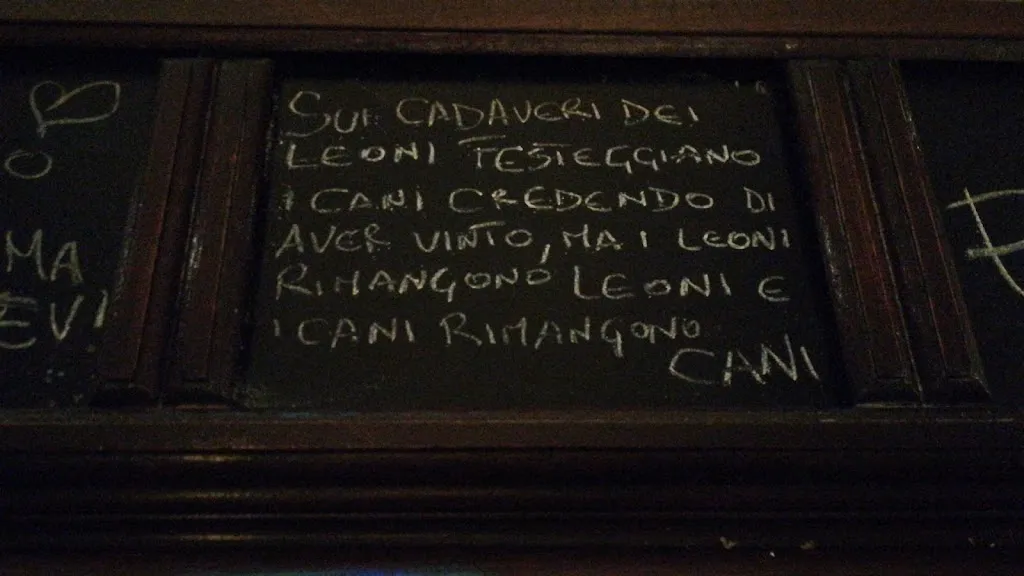 SUI CADAVERI DEI
LEONI FESTEGGIANO
I CANI CREDENDO DI
AVER VINTO, MA I LEONI
RIMANGONO LEONI E
I CANI RIMANGONO
CANI
O
MA
EVI